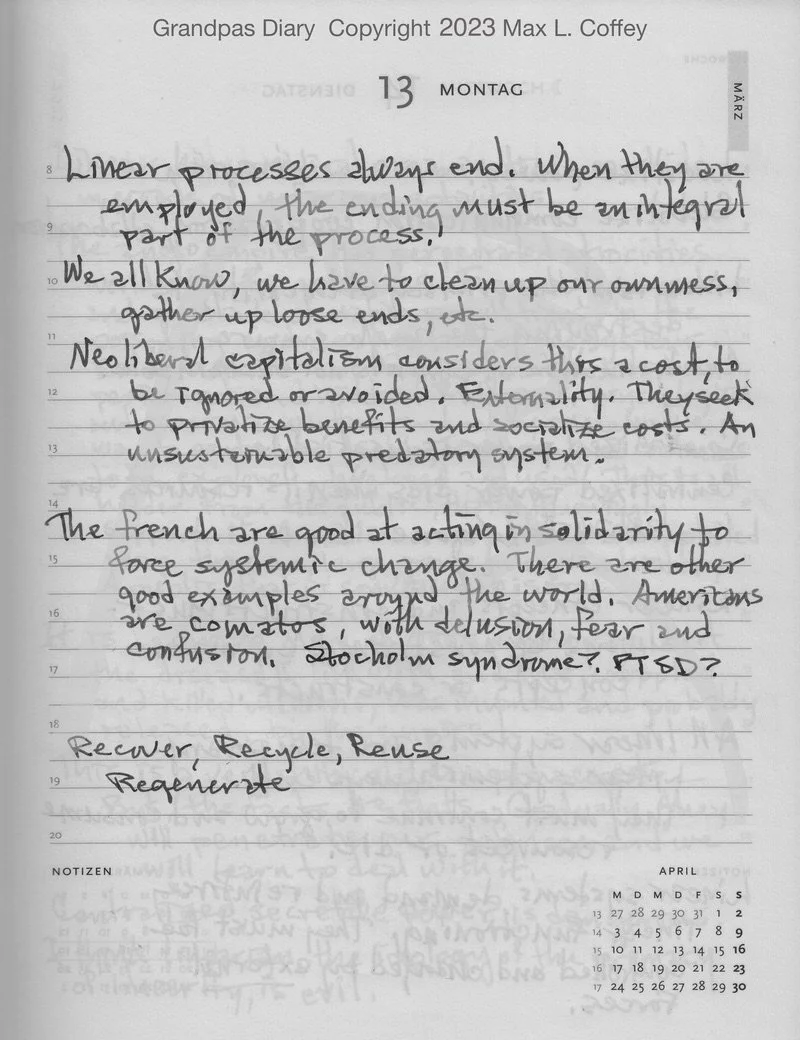 Grandpas Diary Copyright 2023 Max L. Coffey
13 MONTAG
MÄRZ
8 Linear processes always end. When they are
employed, the ending must be an integral
9 part of the process.
10 We all know, we have to clean up our own mess,
gather up loose ends, etc.
11
Neoliberal capitalism considers this a cost, to
12 be ignored or avoided. Externality. They seek
to privatize benefits and socialize costs. An
13 unsustainable predatory system.
14
The french are good at acting in solidarity to
15 force systemic change. There are other
good examples around the world. Americans
16 are comatos, with delusion, fear and
confusion. Stocholm syndrome? PTSD?
17
18
Recover, Recycle, Reuse
19 Regenerate
20
NOTIZEN
APRIL
M D M D F S S
13 27 28 29 30 31 1 2
14 3 4 5 6 7 8 9
15 10 11 12 13 14 15 16
16 17 18 19 20 21 22 23
17 24 25 26 27 28 29 30